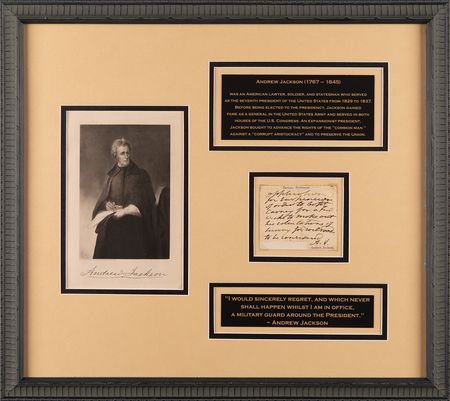 Andrew Jackson
ANDREW JACKSON (1767 – 1845)
WAS AN AMERICAN LAWYER, SOLDIER, AND STATESMAN WHO SERVED
AS THE SEVENTH PRESIDENT OF THE UNITED STATES FROM 1829 TO 1837.
BEFORE BEING ELECTED TO THE PRESIDENCY, JACKSON GAINED
FAME AS A GENERAL IN THE UNITED STATES ARMY AND SERVED IN BOTH
HOUSES OF THE U.S. CONGRESS. AN EXPANSIONIST PRESIDENT,
JACKSON SOUGHT TO ADVANCE THE RIGHTS OF THE "COMMON MAN"
AGAINST A "CORRUPT ARISTOCRACY" AND TO PRESERVE THE UNION.
for
order to
for a
to make out
his
for
to be
A. J.
"I WOULD SINCERELY REGRET, AND WHICH NEVER
SHALL HAPPEN WHILST I AM IN OFFICE,
A MILITARY GUARD AROUND THE PRESIDENT."
~ ANDREW JACKSON